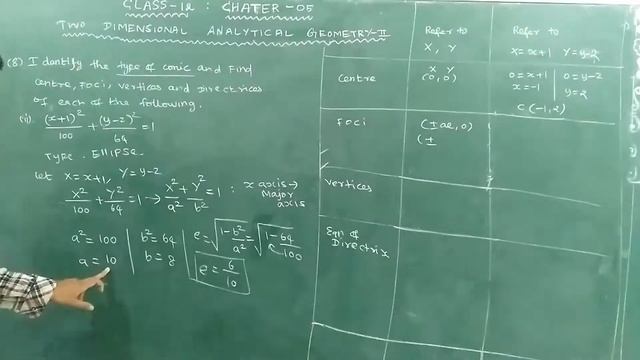 CLASS-12 : CHATER-05
TWO DIMENSIONAL ANALYTICAL GEOMETRY-II
(8) Identify the type of conic and find
centre, foci, vertices and directrices
of each of the following.
(x+1)²/100 + (y-2)²/64 = 1
Type: Ellipse
let X=x+1, Y=y-2
X²/100 + Y²/64 = 1 → X²/a² + Y²/b² = 1 : x axis → Major axis
a²=100 | b²=64 | e=√(1-b²/a²) = √(1-64/100)
a=10 | b=8 | e=6/10
Refer to X, Y
Refer to X=x+1 Y=y-2
Centre
X Y
(0,0)
0=x+1 | 0=y-2
x=-1 | y=2
C(-1,2)
Foci
(±ae,0)
(±
Vertices
Eqn of Directrix